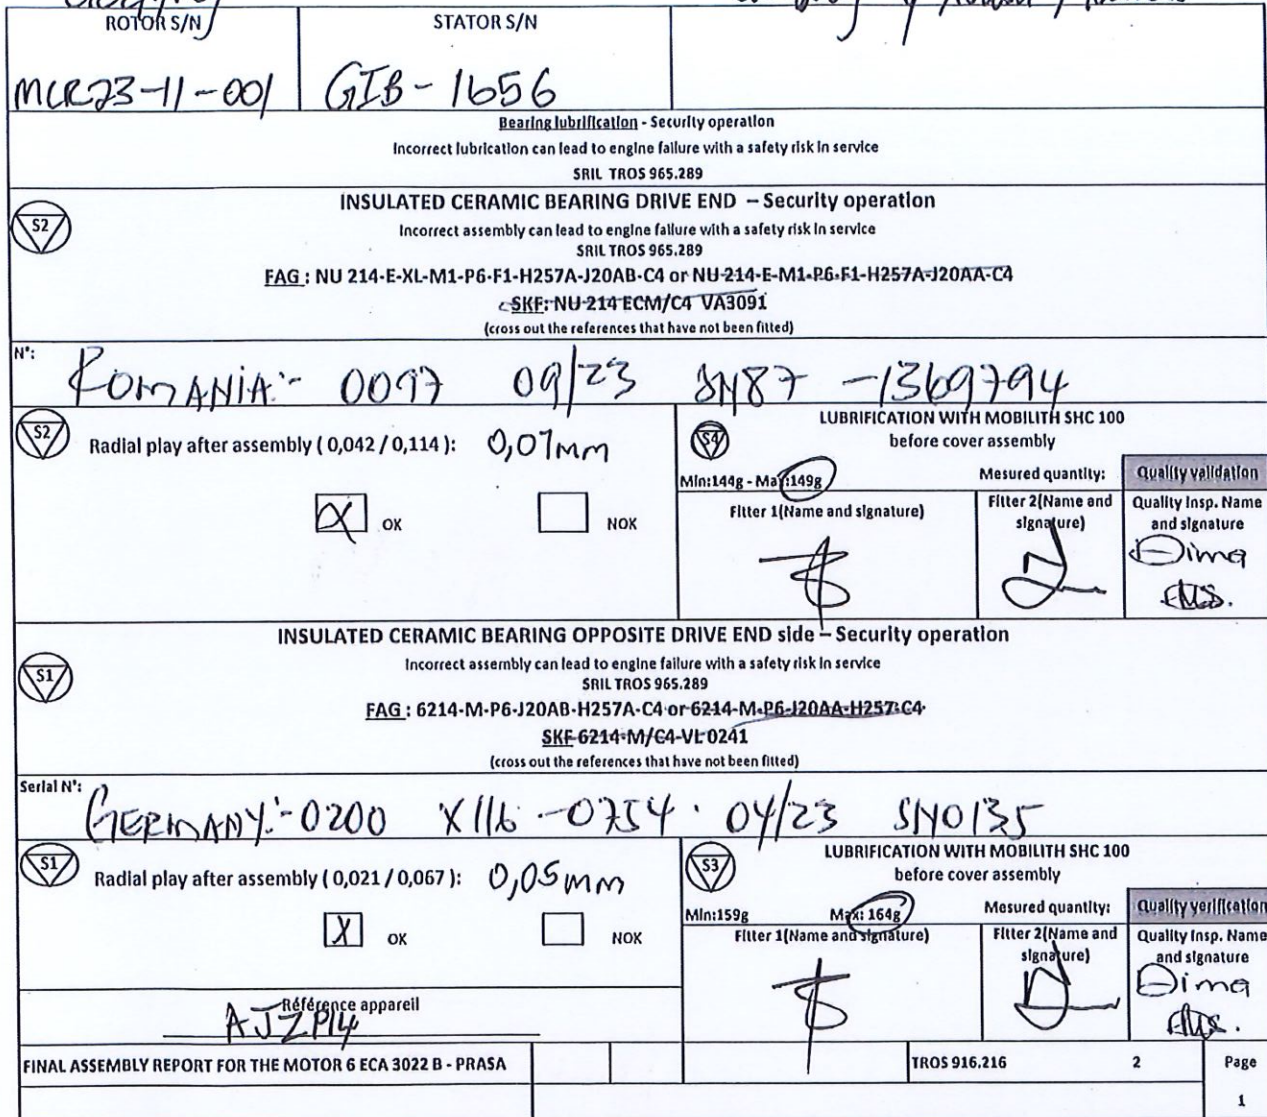 ROTOR S/N
STATOR S/N
MCR23-11-001
GIB-1656
Bearing lubrification - Security operation
Incorrect lubrication can lead to engine failure with a safety risk in service
SRIL TROS 965.289
S2
INSULATED CERAMIC BEARING DRIVE END – Security operation
Incorrect assembly can lead to engine failure with a safety risk in service
SRIL TROS 965.289
FAG : NU 214-E-XL-M1-P6-F1-H257A-J20AB-C4 or NU-214-E-M1-P6-F1-H257A-J20AA-C4
SKF: NU-214 ECM/C4 VA3091
(cross out the references that have not been fitted)
N°:
ROMANIA:- 0097 09/23 SN87 -1369794
S2
Radial play after assembly ( 0,042 / 0,114 ): 0,07mm
OK
NOK
S4
LUBRIFICATION WITH MOBILITH SHC 100
before cover assembly
Min:144g - Max:149g
Mesured quantity:
Quality validation
Fitter 1(Name and signature)
Fitter 2(Name and
signature)
Quality Insp. Name
and signature
Dima
INSULATED CERAMIC BEARING OPPOSITE DRIVE END side – Security operation
S1
Incorrect assembly can lead to engine failure with a safety risk in service
SRIL TROS 965.289
FAG : 6214-M-P6-J20AB-H257A-C4 or 6214-M-P6-J20AA-H257-C4
SKF 6214-M/C4-VL0241
(cross out the references that have not been fitted)
Serial N°:
GERMANY:- 0200 X116 -0754 . 04/23 SN0135
S1
Radial play after assembly ( 0,021 / 0,067 ): 0,05mm
X OK
NOK
S3
LUBRIFICATION WITH MOBILITH SHC 100
before cover assembly
Min:159g
Max: 164g
Mesured quantity:
Quality verification
Fitter 1(Name and signature)
Fitter 2(Name and
signature)
Quality Insp. Name
and signature
Dima
Référence appareil
AJZP14
FINAL ASSEMBLY REPORT FOR THE MOTOR 6 ECA 3022 B - PRASA
TROS 916.216
2
Page
1